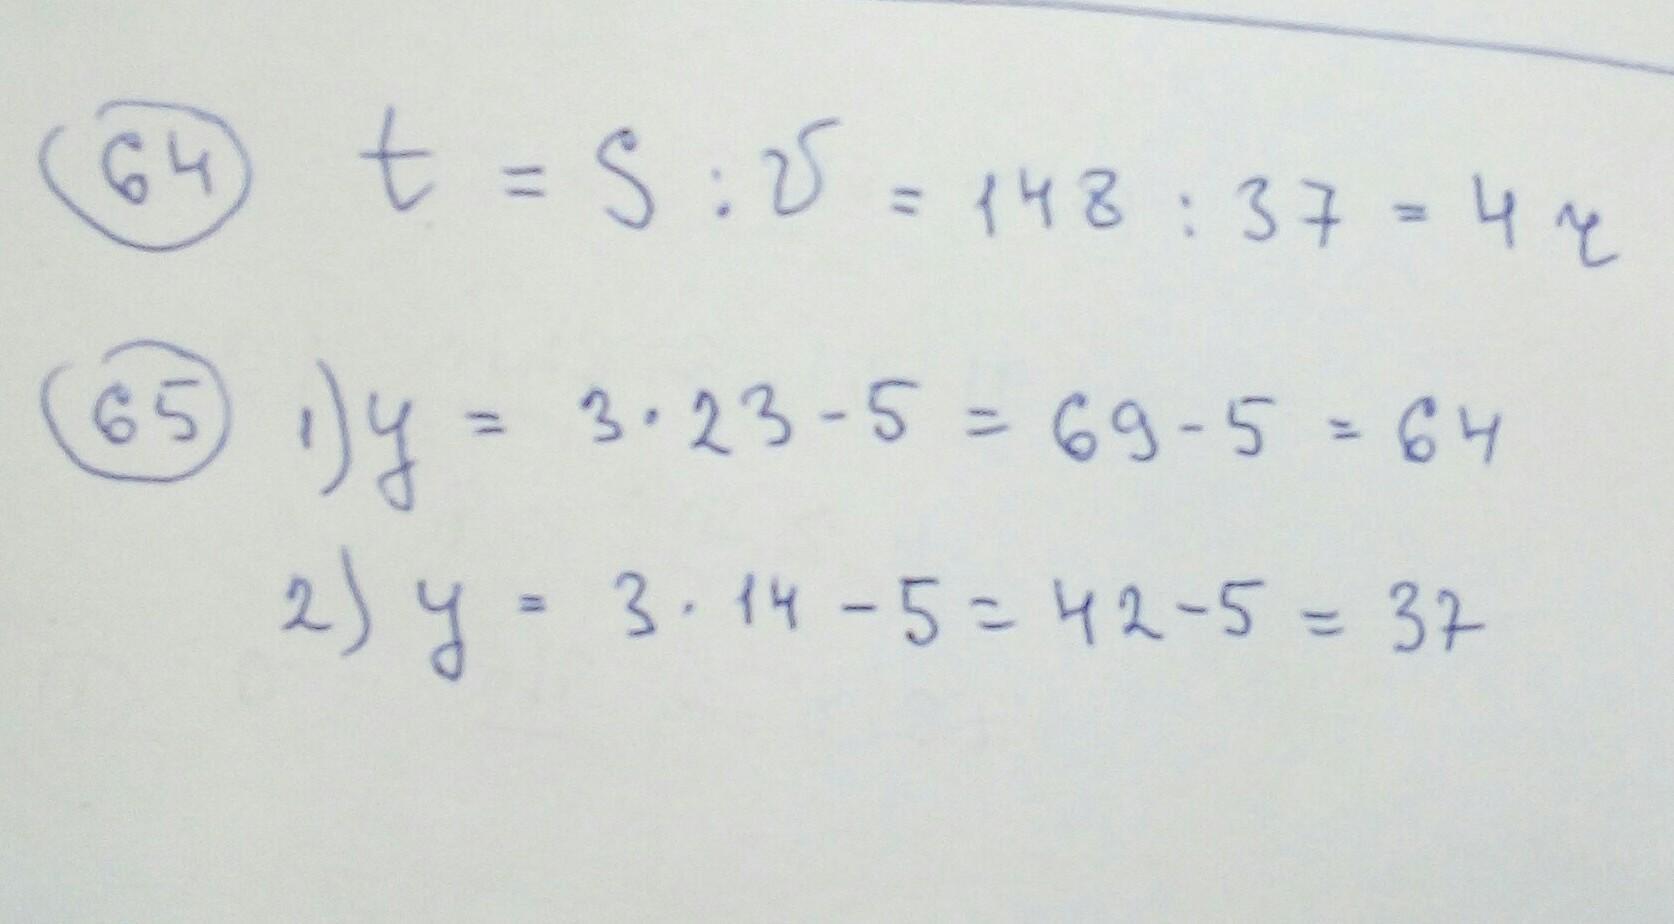 64 t = S : v = 148 : 37 = 4 ч
65 1) y = 3 · 23 - 5 = 69 - 5 = 64
2) y = 3 · 14 - 5 = 42 - 5 = 37